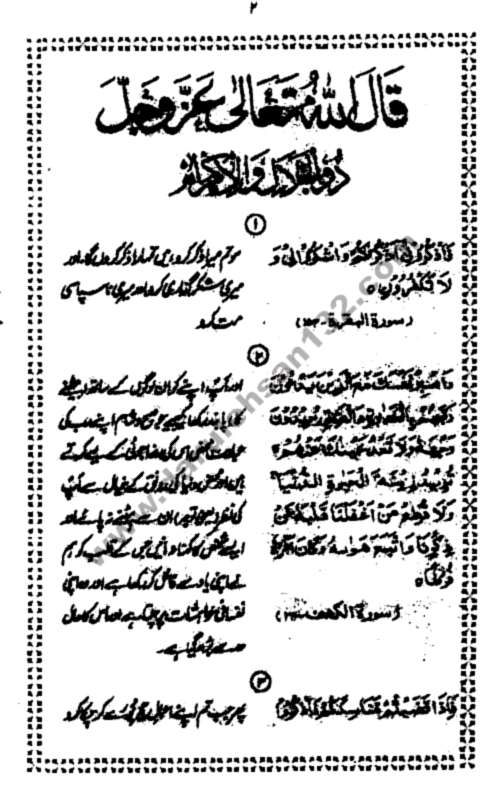 ۲
قال اللہ تعالیٰ عز وجل
ذوالجلال والاکرام
۱
فَاذْكُرُوْنِيْٓ اَذْكُرْكُمْ وَاشْكُرُوْا لِيْ وَ
لَا تَكْفُرُوْنِ
(سورة البقرة-۱۵۲)
سو تم میرا ذکر کرو، میں تمہارا ذکر کروں گا، اور
میری شکر گذاری کرو اور میری ناسپاسی
مت کرو
۲
وَاصْبِرْ نَفْسَكَ مَعَ الَّذِيْنَ يَدْعُوْنَ
رَبَّهُمْ بِالْغَدٰوةِ وَالْعَشِيِّ يُرِيْدُوْنَ
وَجْهَهٗ وَلَا تَعْدُ عَيْنٰكَ عَنْهُمْ
تُرِيْدُ زِيْنَةَ الْحَيٰوةِ الدُّنْيَا
وَلَا تُطِعْ مَنْ اَغْفَلْنَا قَلْبَهٗ عَنْ
ذِكْرِنَا وَاتَّبَعَ هَوٰىهُ وَكَانَ اَمْرُهٗ
فُرُطًا
(سورة الكهف
اور آپ اپنے کو ان لوگوں کے ساتھ
صبح و شام اپنے رب کی
عبادت اس کی رضا جوئی کے لیے کرتے
ہیں اور دنیا کی رونق کے خیال سے آپ
کی ان سے ہٹنے نہ پائے اور
ایسے شخص کا کہنا نہ مانیں جس کے قلب کو ہم
نے اپنی یاد سے غافل کر رکھا ہے اور وہ اپنی
نفسانی خواہشات پر چلتا ہے اور اس کا حال
حد سے بڑھ گیا ہے۔
۳
فَاِذَا قَضَيْتُمْ مَّنَاسِكَكُمْ فَاذْكُرُوا
پھر جب تم اپنے اعمال حج پورے کر چکو
www.darulahsan132.com